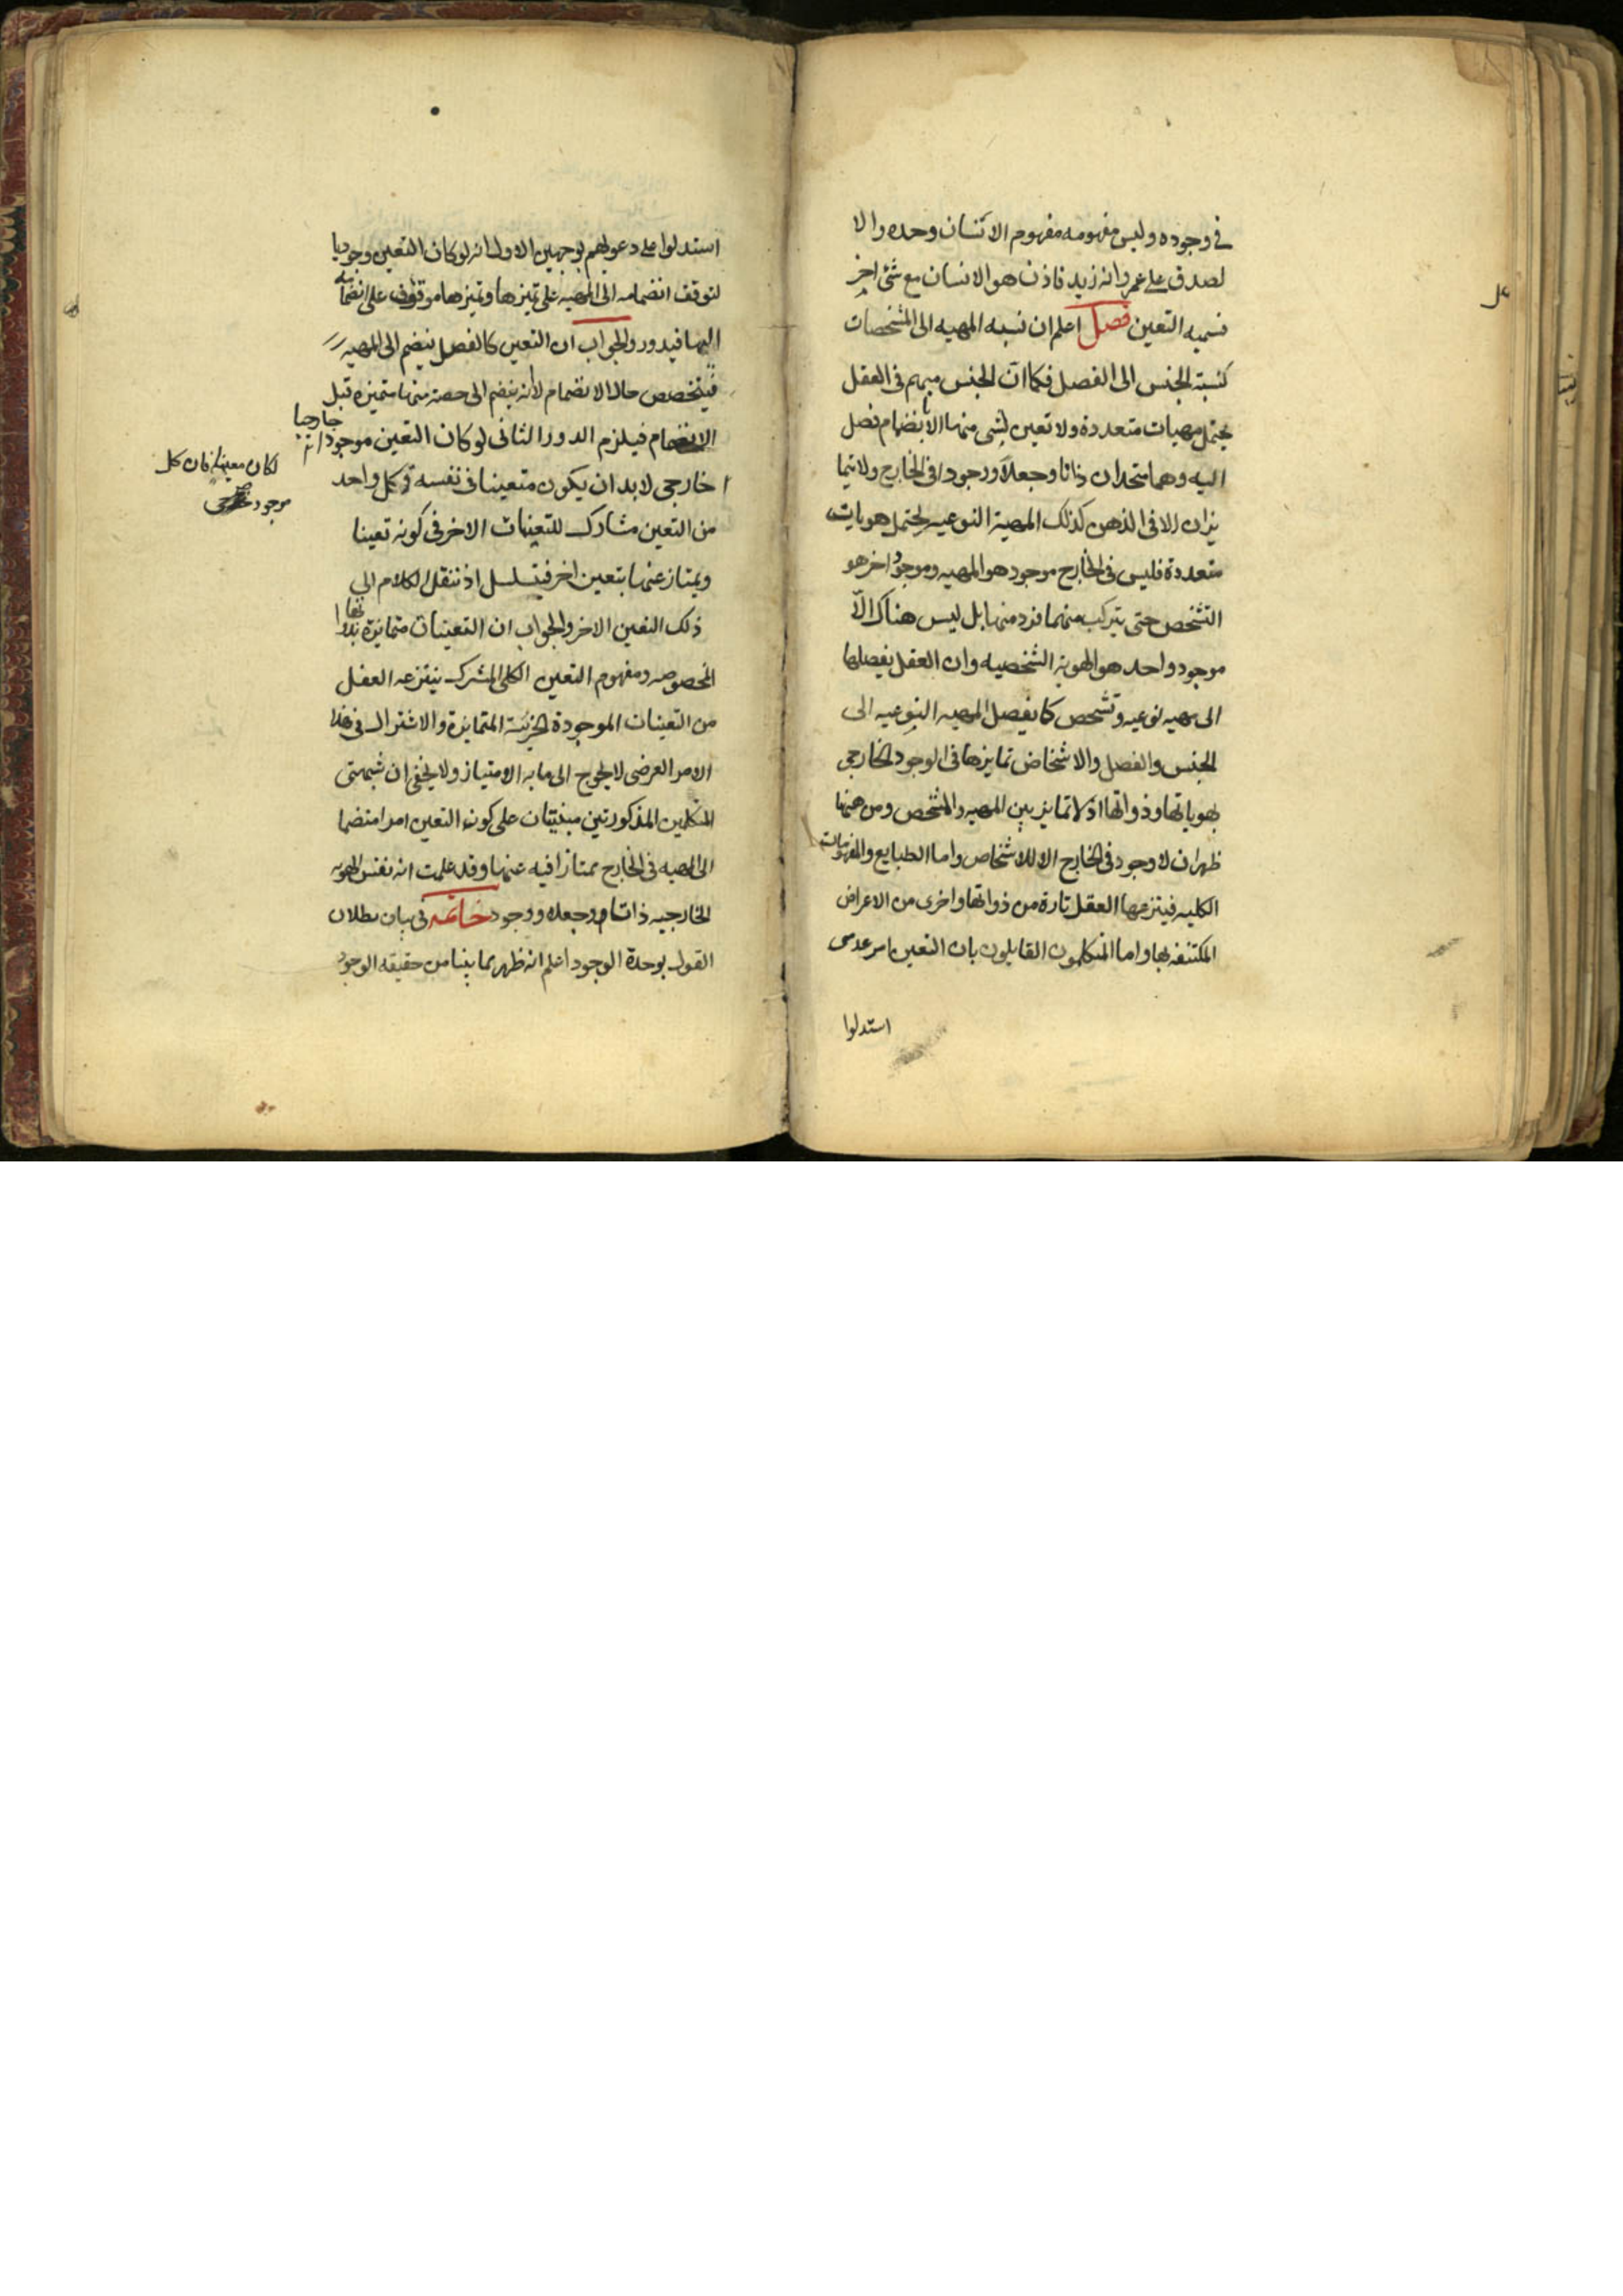 في وجوده وليس مفهومه مفهوم الانسان وحده والا
لصدق على عمرو انه زيد فاذن هو الانسان مع شئ اخر
نسميه التعين فصل اعلم ان نسبه المهيه الى المشخصات
كنسبة الجنس الى الفصل فكما ان الجنس مبهم في العقل
يحتمل مهيات متعددة ولا تعين لشى منها الا بانضمام فصل
اليه وهما متحدان ذاتا وجعلا ووجودا في الخارج ولا يتما
يزان الا في الذهن كذلك المهية النوعيه يحتمل هويات
متعددة فليس في الخارج موجود هو المهيه وموجود اخر هو
التشخص حتى يتركب منهما فرد منها بل ليس هناك الا
موجود واحد هو الهوية الشخصيه وان العقل يفصلها
الى مهيه نوعيه وتشخص كما يفصل المهيه النوعيه الى
الجنس والفصل والاشخاص تمايزها في الوجود الخارجي
بهوياتها وذواتها اذ لا تمايز بين المهيه والمشخص ومن هنا
ظهر ان لا وجود في الخارج الا للاشخاص واما الطبايع والمفهومات
الكليه فينتزعها العقل تارة من ذواتها واخرى من الاعراض
المكتنفه بها واما المتكلمون القايلون بان التعين امر عدمى
استدلوا
استدلوا على دعويهم بوجهين الاول انه لو كان التعين وجوديا
لتوقف انضمامه الى المهيه على تميزها وتميزها موقوف على انضمامه
اليها فيدور والجواب ان التعين كالفصل ينضم الى المهيه
فيتخصص حال الانضمام لا انه ينضم الى حصة منها متميزه قبل
الانضمام فيلزم الدور الثانى لو كان التعين موجودا
خارجيا
لكان معينا فان كل
موجود
خارجي لابد ان يكون متعينا في نفسه وكل واحد
من التعين مشارك للتعينات الاخر في كونه تعينا
ويمتاز عنها بتعين اخر فيتسلسل اذ ننقل الكلام الى
ذلك التعين الاخر والجواب ان التعينات متمايزة بذواتها
المخصوصه ومفهوم التعين الكلى المشترك ينتزعه العقل
من التعينات الموجودة الجزئية المتمايزة والاشتراك في هذا
الامر العرضى لا يحوج الى ما به الامتياز ولا يخفى ان شبهتى
المتكلمين المذكورتين مبنيتان على كون التعين امرا منضما
الى المهيه في الخارج ممتازا فيه عنها وقد علمت انه نفس الهويه
الخارجيه ذاتا وجعلا ووجود خاتمه في بيان بطلان
القول بوحدة الوجود اعلم انه ظهر مما بينا من حقيقه الوجود